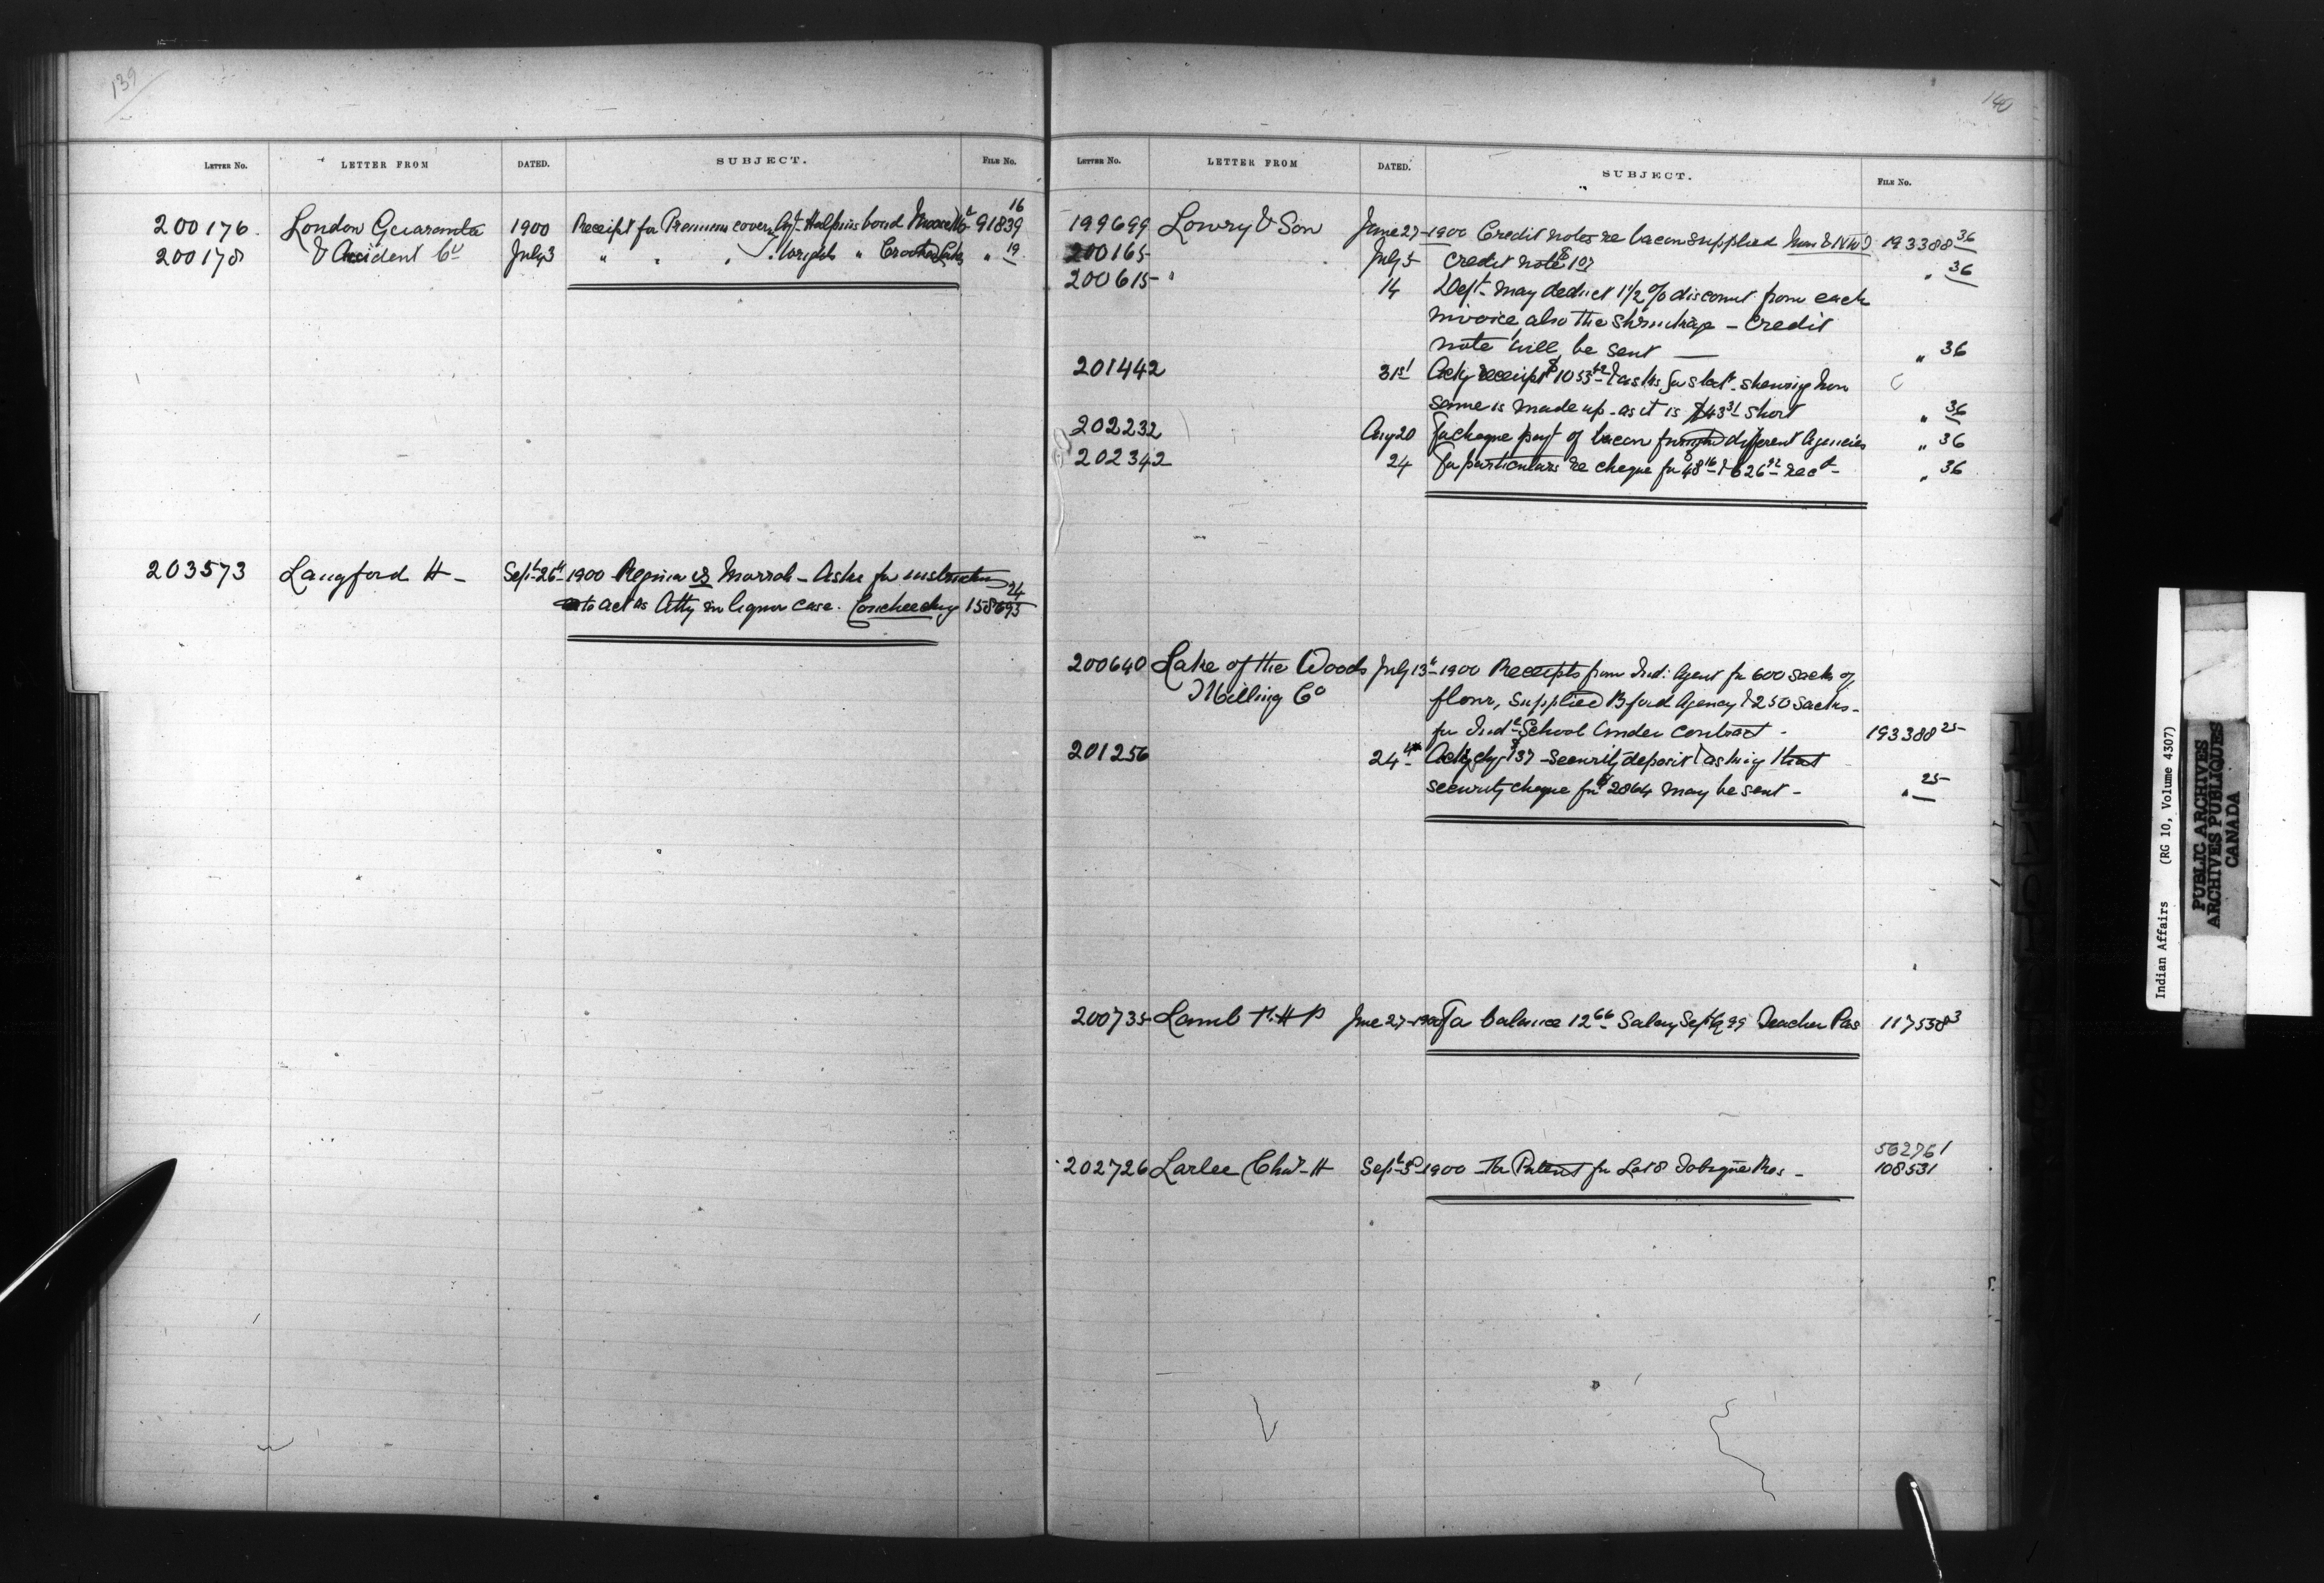 139
LETTER NO. LETTER FROM DATED. SUBJECT. FILE NO.
200176. London Guarantee 1900 Receipt for Premium cover Agt Halpin's bond Moose Mt 91839 16
200178 & Accident Co July 3 " " " Wright's " Crooked Lakes " 19
203573 Langford H - Sept 26th 1900 Regina vs Marrah - Asks for instruction
to act as Atty in liquor case. Couchiching 158693 24
140
LETTER NO. LETTER FROM DATED. SUBJECT. FILE NO.
199699 Lowry & Son June 27-1900 Credit notes re bacon supplied Man & NWT 193388 36
200165 July 5 Credit note $107 " 36
200615 " 14 Dept may deduct 1 1/2 % discount from each
invoice, also the shrinkage - Credit
note will be sent — " 36
201442 31st Ackg receipt $1053 & asks for stat. shewing how
same is made up - as it is $43 31 short " 36
202232 Aug 20 For cheque payt of bacon different Agencies " 36
202342 24 For particulars re cheque for $48 16 & 626 92 recd - " 36
200640 Lake of the Woods July 13th 1900 Receipts from Ind: Agent for 600 sacks of
Milling Co flour, supplied B'ford Agency & 250 sacks -
for Indl School under contract - 193388 25
201256 24th Ackg chq $137 - security deposit & asking that
security cheque for $2864 may be sent - " 25
200735 Lamb H P June 27-1900 For balance 12 66 Salary Sept q 99 Teacher Pas 117538 3
562761
202726 Larlee Chas H Sept 3d 1900 For Patent for Lot 8 Tobique Res - 108531
Indian Affairs (RG 10, Volume 4307)
PUBLIC ARCHIVES
ARCHIVES PUBLIQUES
CANADA